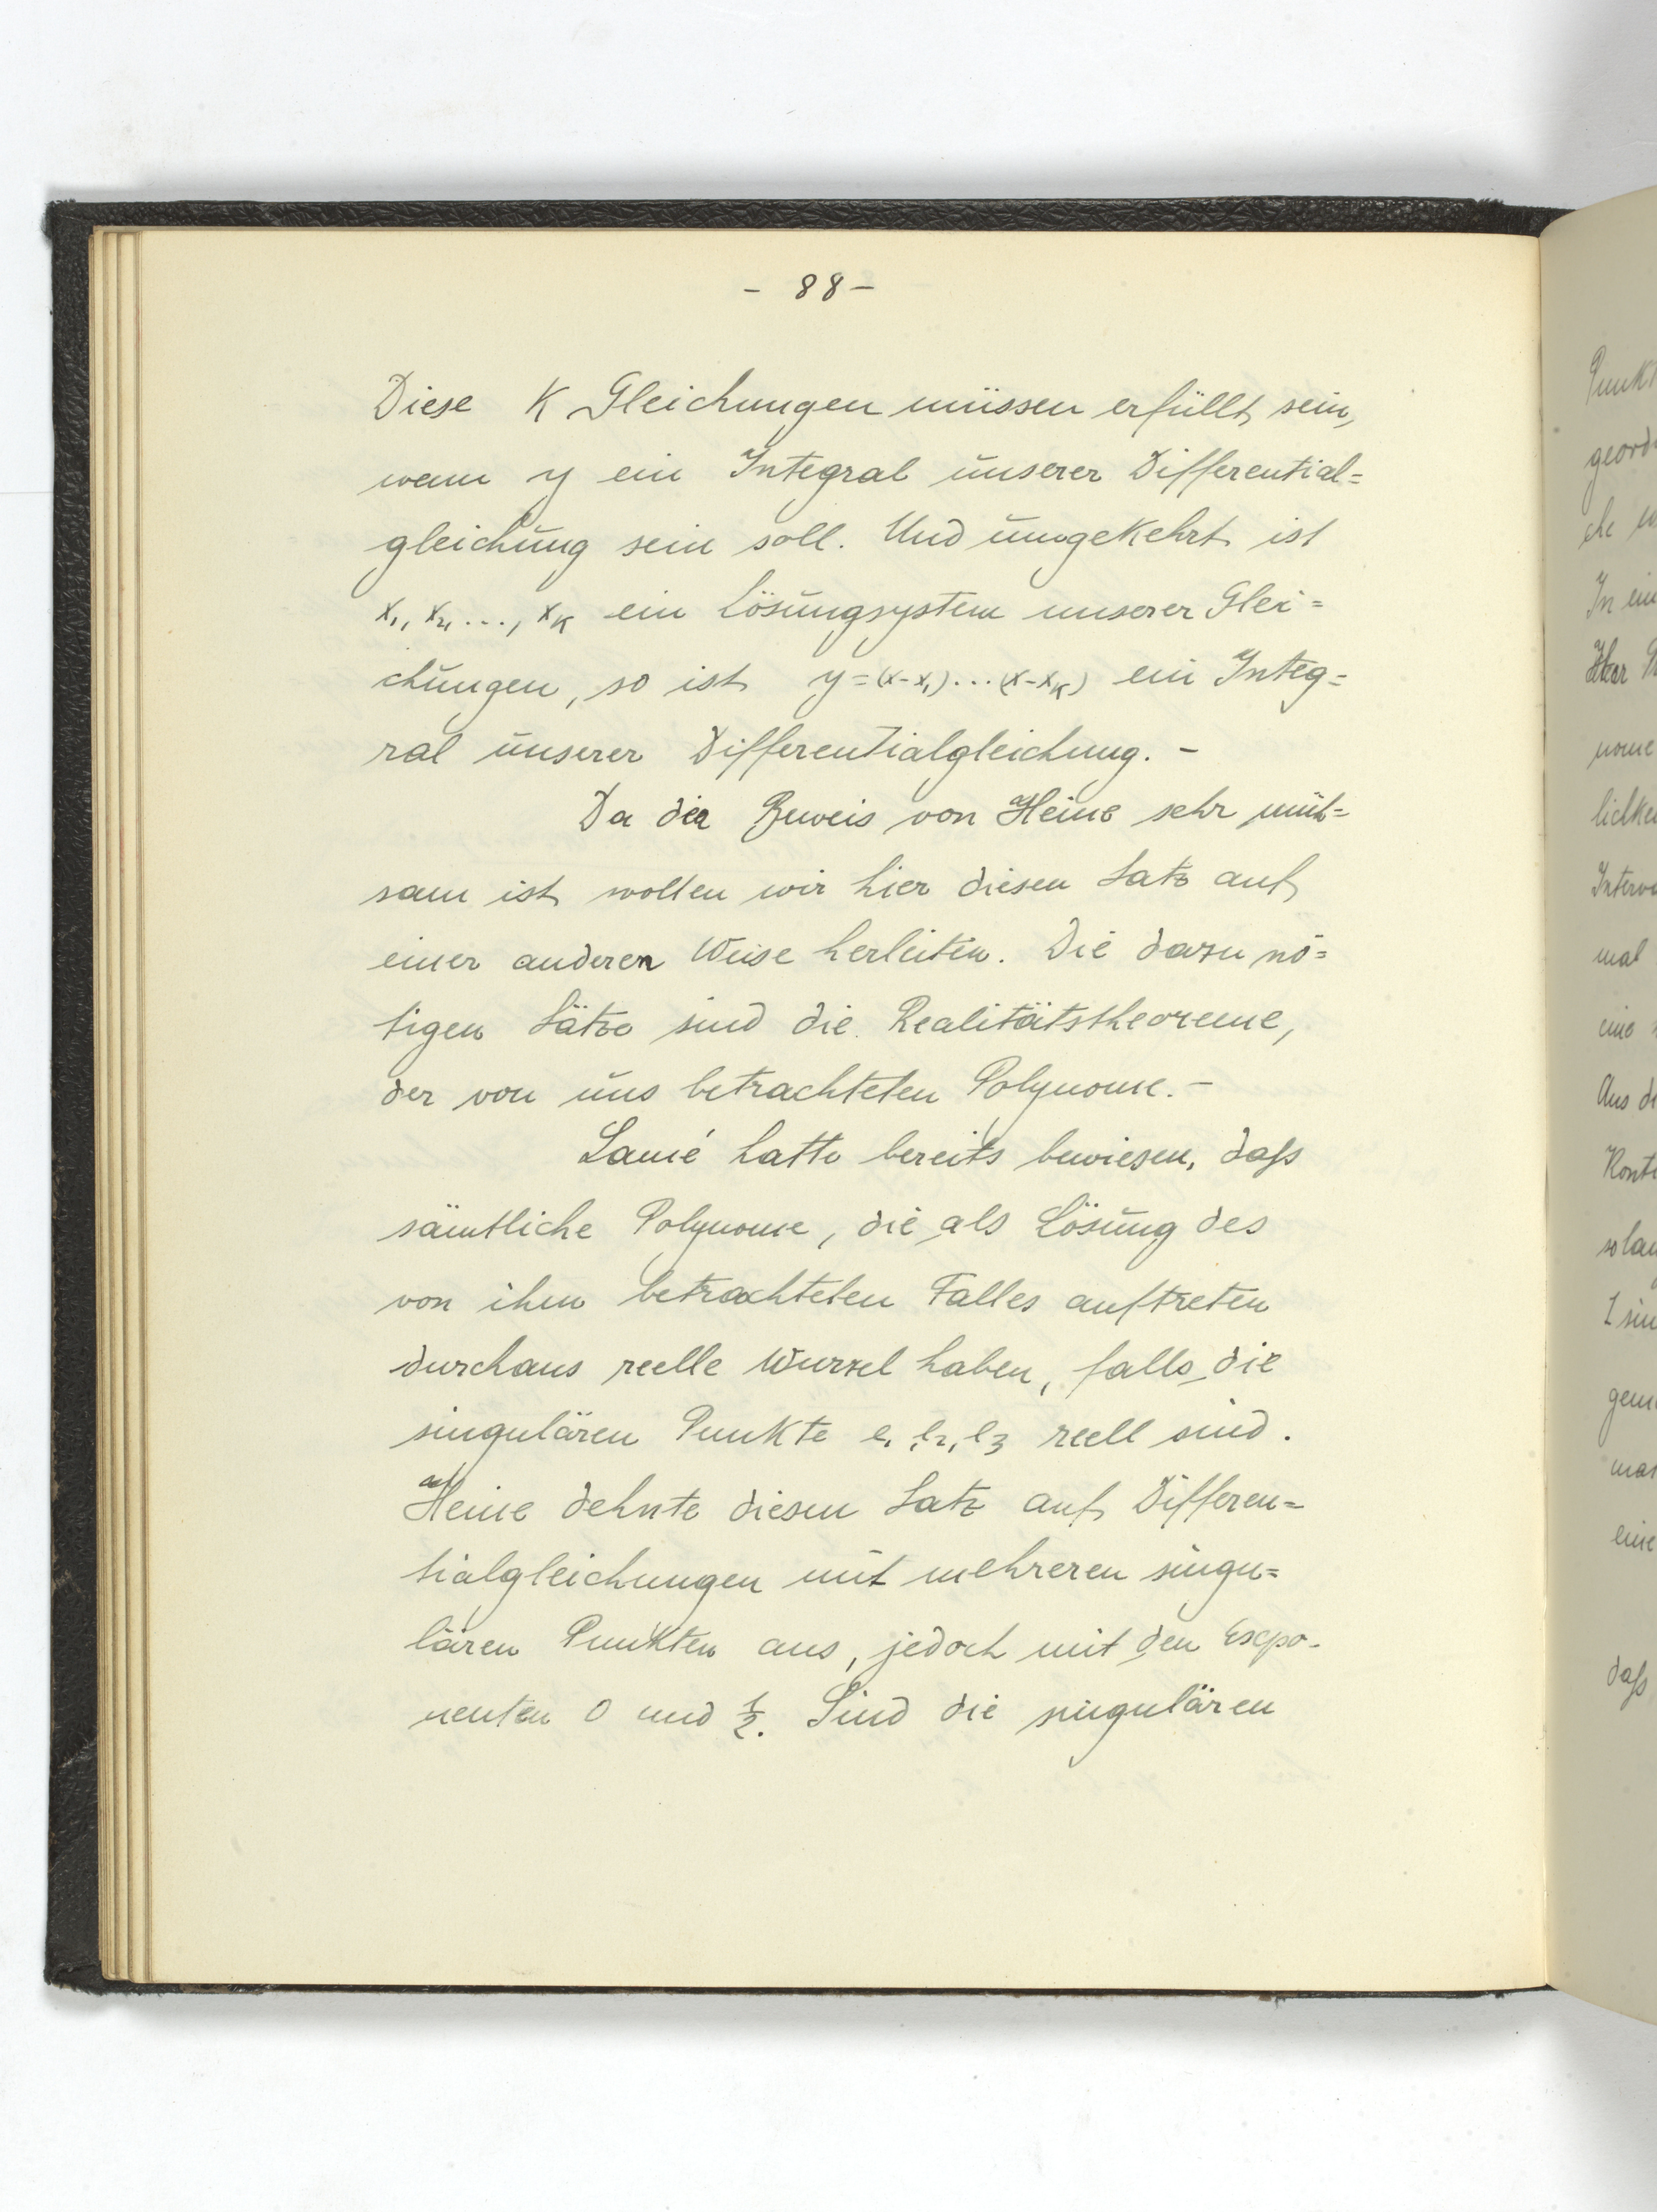 - 88 -
Diese K Gleichungen müssen erfüllt sein,
wenn y ein Integral unserer Differential=
gleichung sein soll. Und umgekehrt ist
x₁, x₂, ..., x_K ein Lösungsystem unserer Glei=
chungen, so ist y=(x-x₁)...(x-x_K) ein Integ=
ral unserer Differentialgleichung. -
Da der Beweis von Heine sehr müh=
sam ist wollen wir hier diesen Satz auf
einer anderen Weise herleiten. Die dazu nö=
tigen Sätze sind die Realitätstheoreme,
der von uns betrachteten Polynome. -
Lamé hatte bereits bewiesen, daß
sämtliche Polynome, die als Lösung des
von ihm betrachteten Falles auftreten
durchaus reelle Wurzel haben, falls die
singulären Punkte e₁, e₂, e₃ reell sind.
Heine dehnte diesen Satz auf Differen=
tialgleichungen mit mehreren singu=
lären Punkten aus, jedoch mit den Expo-
nenten 0 und ½. Sind die singulären
Punkt
geord
che
In ein
nome
lichke
Interva
mal
eine
Aus di
Konti
solan
1 sin
gem
man
eine
daß